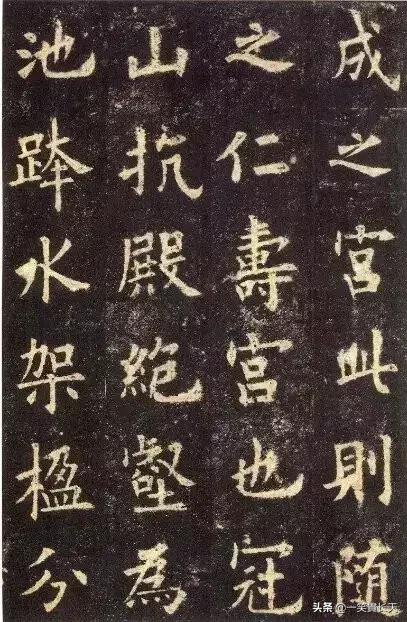 成之宮此則随
之仁壽宮也冠
山抗殿絶壑為
池跨水架楹分
头条 @一笑贯长天